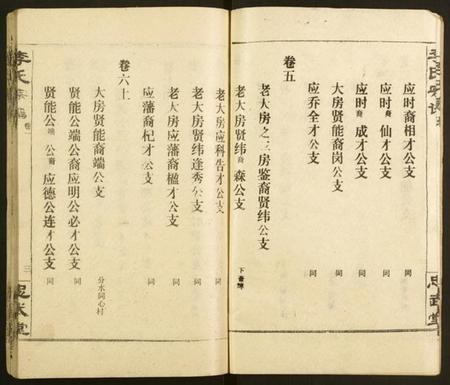 应时裔相才公支 同
应时裔仙才公支 同
应时裔成才公支 同
大房贤能裔岗公支 同
应乔全才公支 同
卷五
老大房之三房鉴裔贤纬公支
老大房贤纬裔森公支
老大房应科告才公支 同
老大房贤纬逢秀公支 同
老大房应藩裔楹才公支 同
应藩裔杞才公支 同
卷六上
大房贤能裔端公支 分水同心村
贤能公端公裔应明公必才公支 同
贤能公端公裔应德公连才公支 同
李氏宗谱
忠武堂